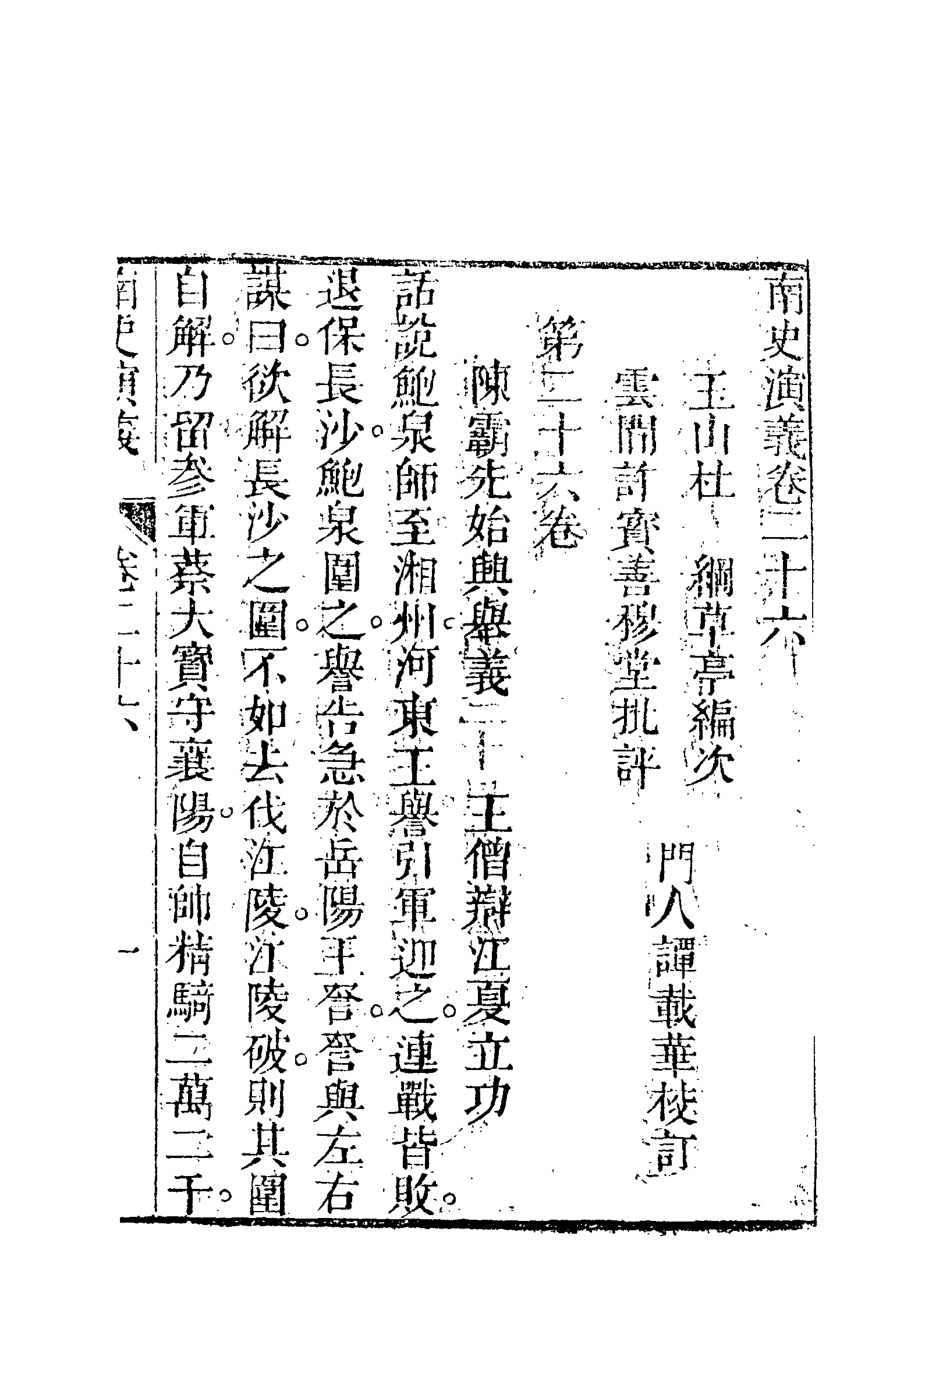 南史演義卷二十六
玉山杜　綱草亭編次
雲間許寶善穆堂批評
門人譚載華校訂
第二十六卷
陳霸先始興舉義　王僧辯江夏立功
話說鮑泉師至湘州。河東王譽引軍迎之。連戰皆敗。
退保長沙。鮑泉圍之。譽告急於岳陽王詧。詧與左右
謀曰。欲解長沙之圍。不如去伐江陵。江陵破。則其圍
自解。乃留參軍蔡大寶守襄陽。自帥精騎二萬二千。
南史演義　卷二十六　一